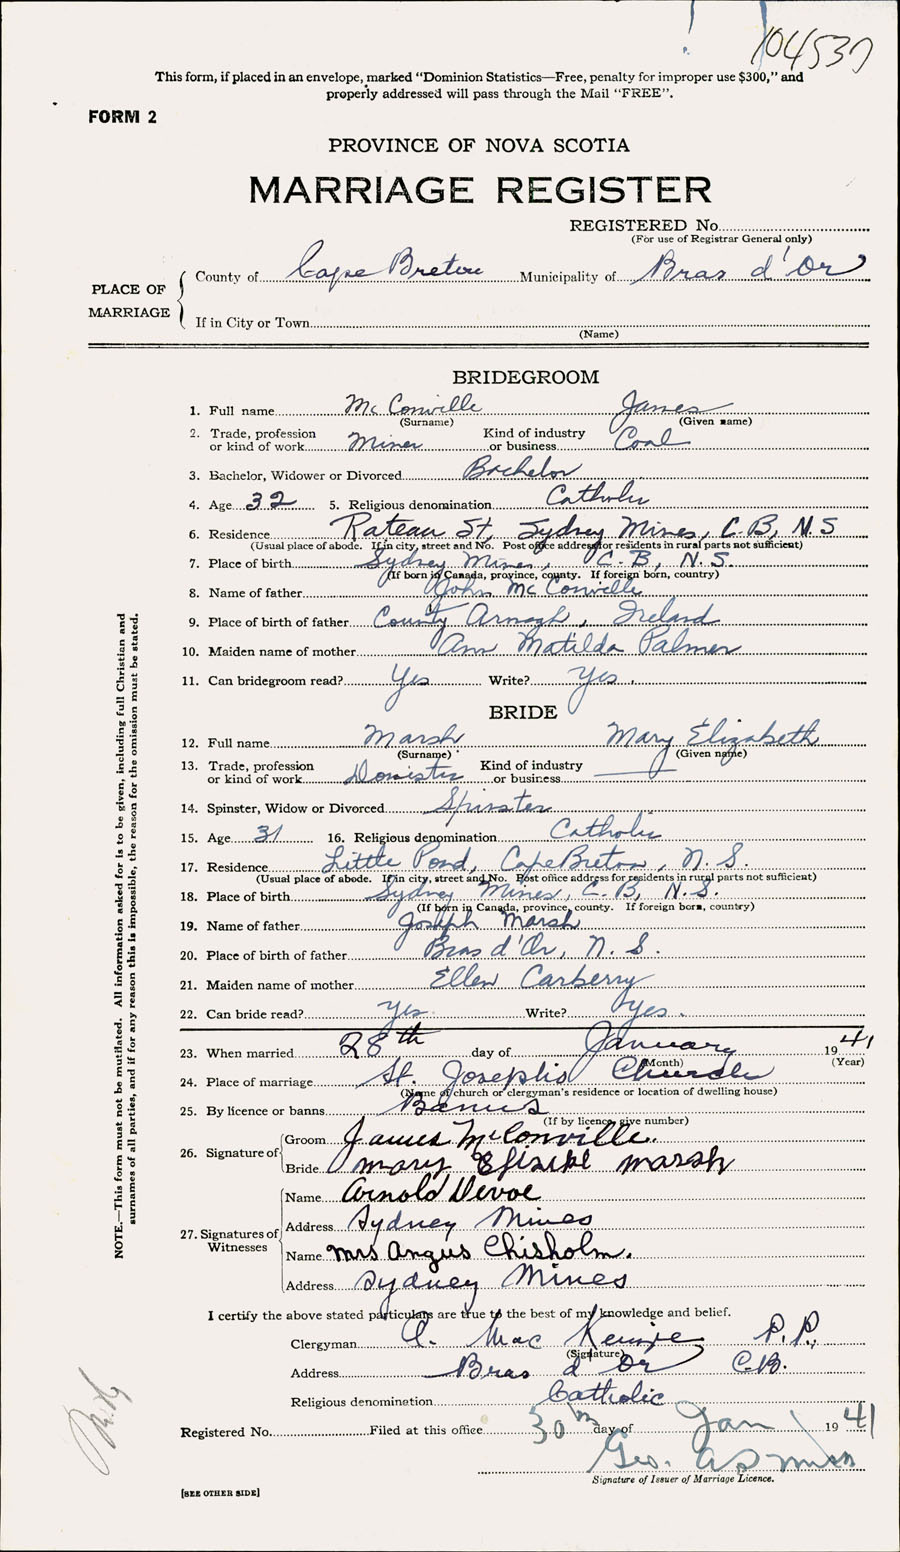 104537
This form, if placed in an envelope, marked "Dominion Statistics—Free, penalty for improper use $300," and
properly addressed will pass through the Mail "FREE".
FORM 2
PROVINCE OF NOVA SCOTIA
MARRIAGE REGISTER
REGISTERED No.
(For use of Registrar General only)
PLACE OF MARRIAGE
County of Cape Breton Municipality of Bras d'Or
If in City or Town
(Name)
BRIDEGROOM
1. Full name McConville James
(Surname) (Given name)
2. Trade, profession or kind of work Miner Kind of industry or business Coal
3. Bachelor, Widower or Divorced Bachelor
4. Age 32 5. Religious denomination Catholic
6. Residence Rateau St, Sydney Mines, C.B, N.S
(Usual place of abode. If in city, street and No. Post office address for residents in rural parts not sufficient)
7. Place of birth Sydney Mines, C.B, N.S.
(If born in Canada, province, county. If foreign born, country)
8. Name of father John McConville
9. Place of birth of father County Armagh, Ireland
10. Maiden name of mother Ann Matilda Palmer
11. Can bridegroom read? Yes Write? Yes.
BRIDE
12. Full name Marsh Mary Elizabeth
(Surname) (Given name)
13. Trade, profession or kind of work Domestic Kind of industry or business
14. Spinster, Widow or Divorced Spinster
15. Age 31 16. Religious denomination Catholic
17. Residence Little Pond, Cape Breton, N.S.
(Usual place of abode. If in city, street and No. Post office address for residents in rural parts not sufficient)
18. Place of birth Sydney Mines, C.B, N.S.
(If born in Canada, province, county. If foreign born, country)
19. Name of father Joseph Marsh
20. Place of birth of father Bras d'Or, N.S.
21. Maiden name of mother Ellen Carberry
22. Can bride read? Yes. Write? Yes.
23. When married 28th day of January 1941
(Month) (Year)
24. Place of marriage St. Joseph's Church
(Name of church or clergyman's residence or location of dwelling house)
25. By licence or banns Banns
(If by licence, give number)
26. Signature of
Groom James McConville.
Bride Mary marsh
27. Signatures of Witnesses
Name Arnold Devoe
Address Sydney Mines
Name Mrs Angus Chisholm.
Address Sydney Mines
I certify the above stated particulars are true to the best of my knowledge and belief.
Clergyman A. MacKenzie P.P.
(Signature)
Address Bras d'Or C.B.
Religious denomination Catholic
Registered No. Filed at this office 30th day of Jan 1941
Geo.
Signature of Issuer of Marriage Licence.
[SEE OTHER SIDE]
NOTE.—This form must not be mutilated. All information asked for is to be given, including full Christian and
surnames of all parties, and if for any reason this is impossible, the reason for the omission must be stated.